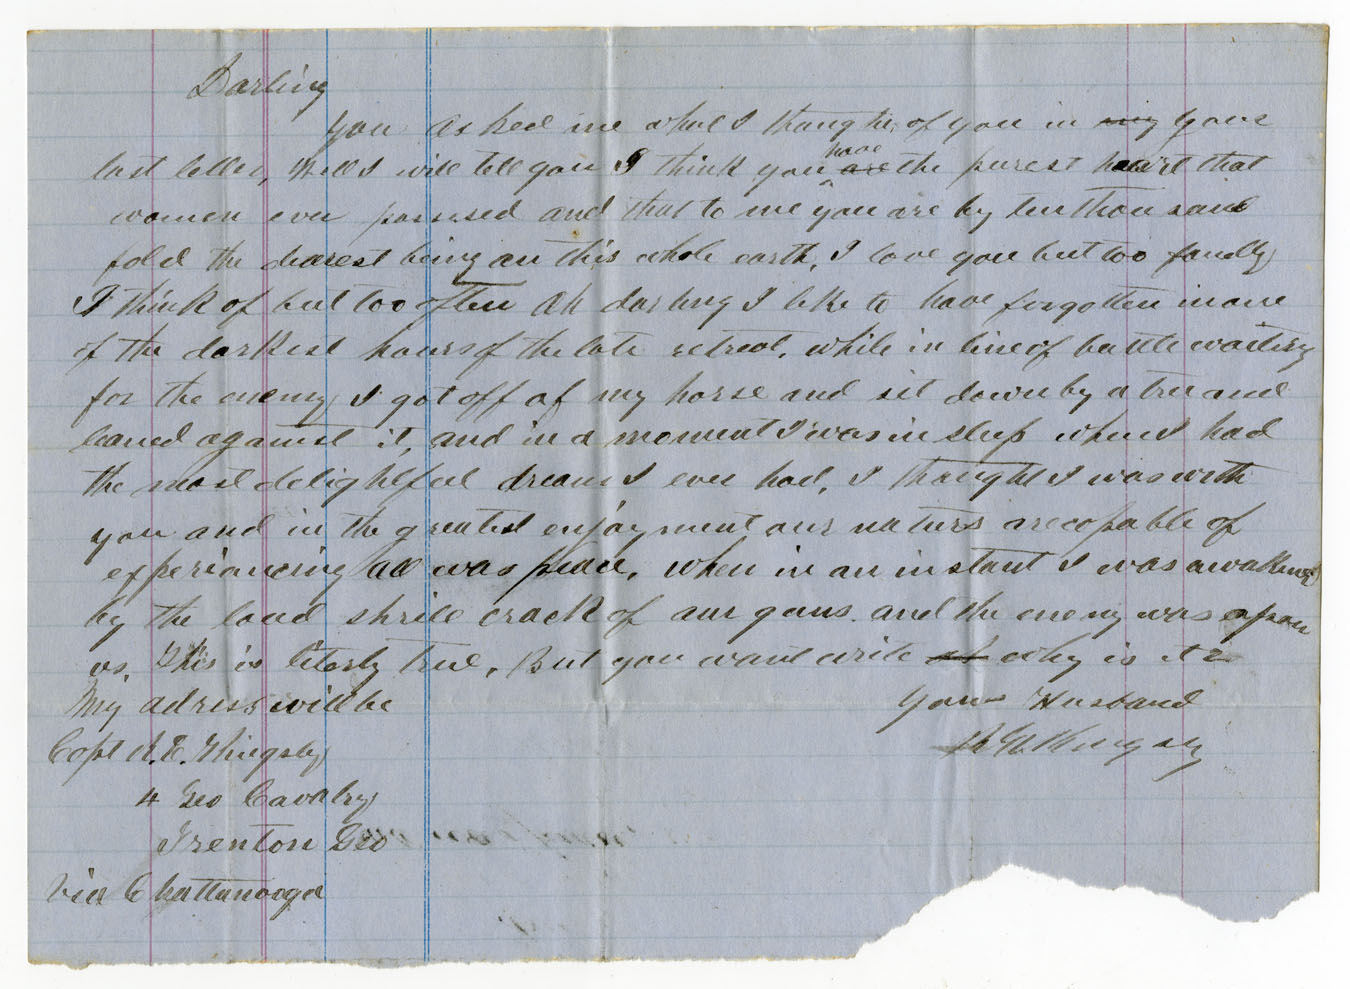 Darling
you asked me what I thought of you in my yours
last letter, Well I will tell you I think you are have the purest heart that
women ever possesed and that to me you are by ten thousand
fold the dearest being on this whole earth, I love you but too fondly
I think of but too often Oh darling I like to have forgotten in one
of the darkest hours of the late retreat, while in line of battle waiting
for the enemy I got off of my horse and sit down by a tree and
leaned against it, and in a moment I was in sleep when I had
the most delightful dream I ever had, I thought I was with
you and in the greatest enjoyment our naturs are copable of
experiancing all was peace, when in an instant I was awakened
by the loud shrile crack of our guns and the enemy was upon
us, this is literly true, But you wont write why is it?
My adress will be
Your Husband
Capt A.E.
4 Geo Cavalry
Trenton Geo
Via Chattanooga